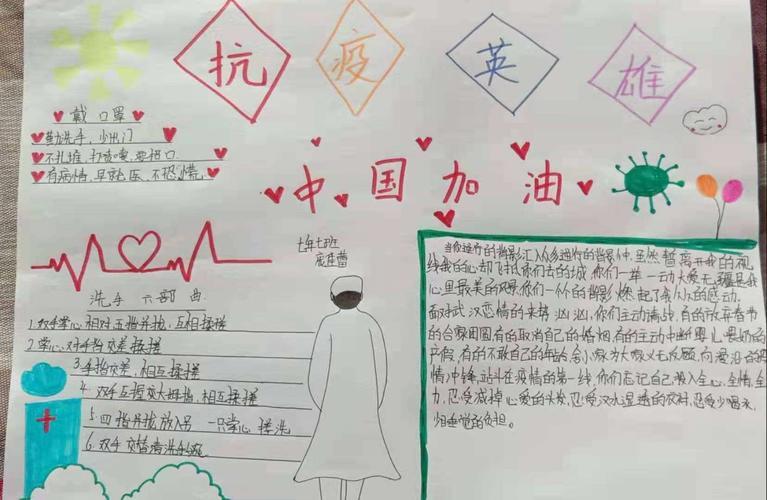 抗疫英雄
戴口罩
勤洗手,少出门
不扎堆,打喷嚏,要捂口
有病情,早就医,不恐慌。
中国加油
七年七班
洗手六部曲
1.双手掌心相对五指并拢,互相揉搓
2.掌心对手指交差揉搓
3.手指交差,相互揉搓
4.双手互握交大拇指,相互揉搓
5.四指并拢放入另一只掌心揉洗
6.双手交替清洗手腕
当你逆行的背影汇入众多逆行的背影中,虽然暂离开我的视
线我的心却飞抵你们去的城,你们一举一动大爱无疆是我
心里最美的风景你们一个个的背影燃起了众人的感动。
面对武汉疫情的来势汹汹,你们主动请战,有的放弃春节
的合家团圆有的取消自己的婚姻,有的主动中断婴儿喂奶的
产假,有的不顾自己的年龄,舍小家为大家义无反顾,向着沿的疫
情冲锋,站斗在疫情的第一线,你们忘记自己投入全心,全情,全
力,忍受减掉心爱的头发,忍受汗水湿透的衣衬,忍受少喝水,
少睡觉的负担。